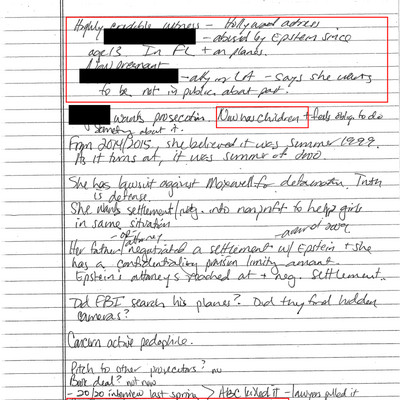 Highly credible witness - Hollywood actress
- abused by Epstein since
age 13 In FL + on planes.
Now pregnant
- atty in LA - says she wants
to be not in public about past.
wants prosecution. Now has children + feels oblig. to do
something about it.
From 2014/2015, she believed it was summer 1999.
As it turns out, it was summer of 2000.
She has lawsuit against Maxwell for defamation. Truth
is defense.
She wants settlement/ neg. into nonprofit to help girls
in same situation
- or attorney
Her father/negotiated a settlement w/ Epstein + she
has a confidentiality provision limiting amount.
Epstein's attorneys reached out + neg. settlement.
Did FBI search his planes? Did they find hidden
cameras?
Concern active pedophile.
Pitch to other prosecutors? no
Book deal? not now
- 20/20 interview last spring > ABC killed it - lawyers pulled it